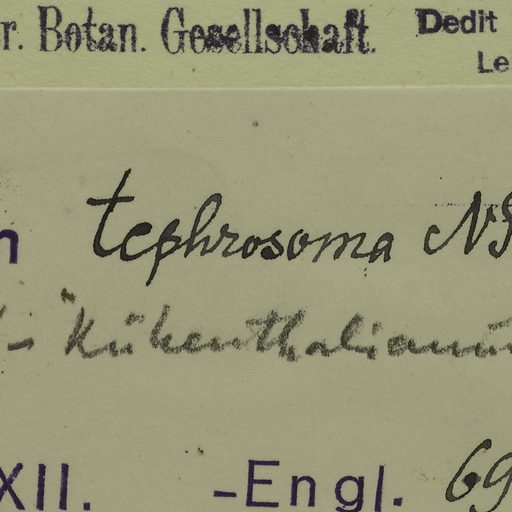 r. Botan. Gesellschaft. Dedit
Le
n tephrosoma N
- Kükenthalianum
XII. -Engl. 69